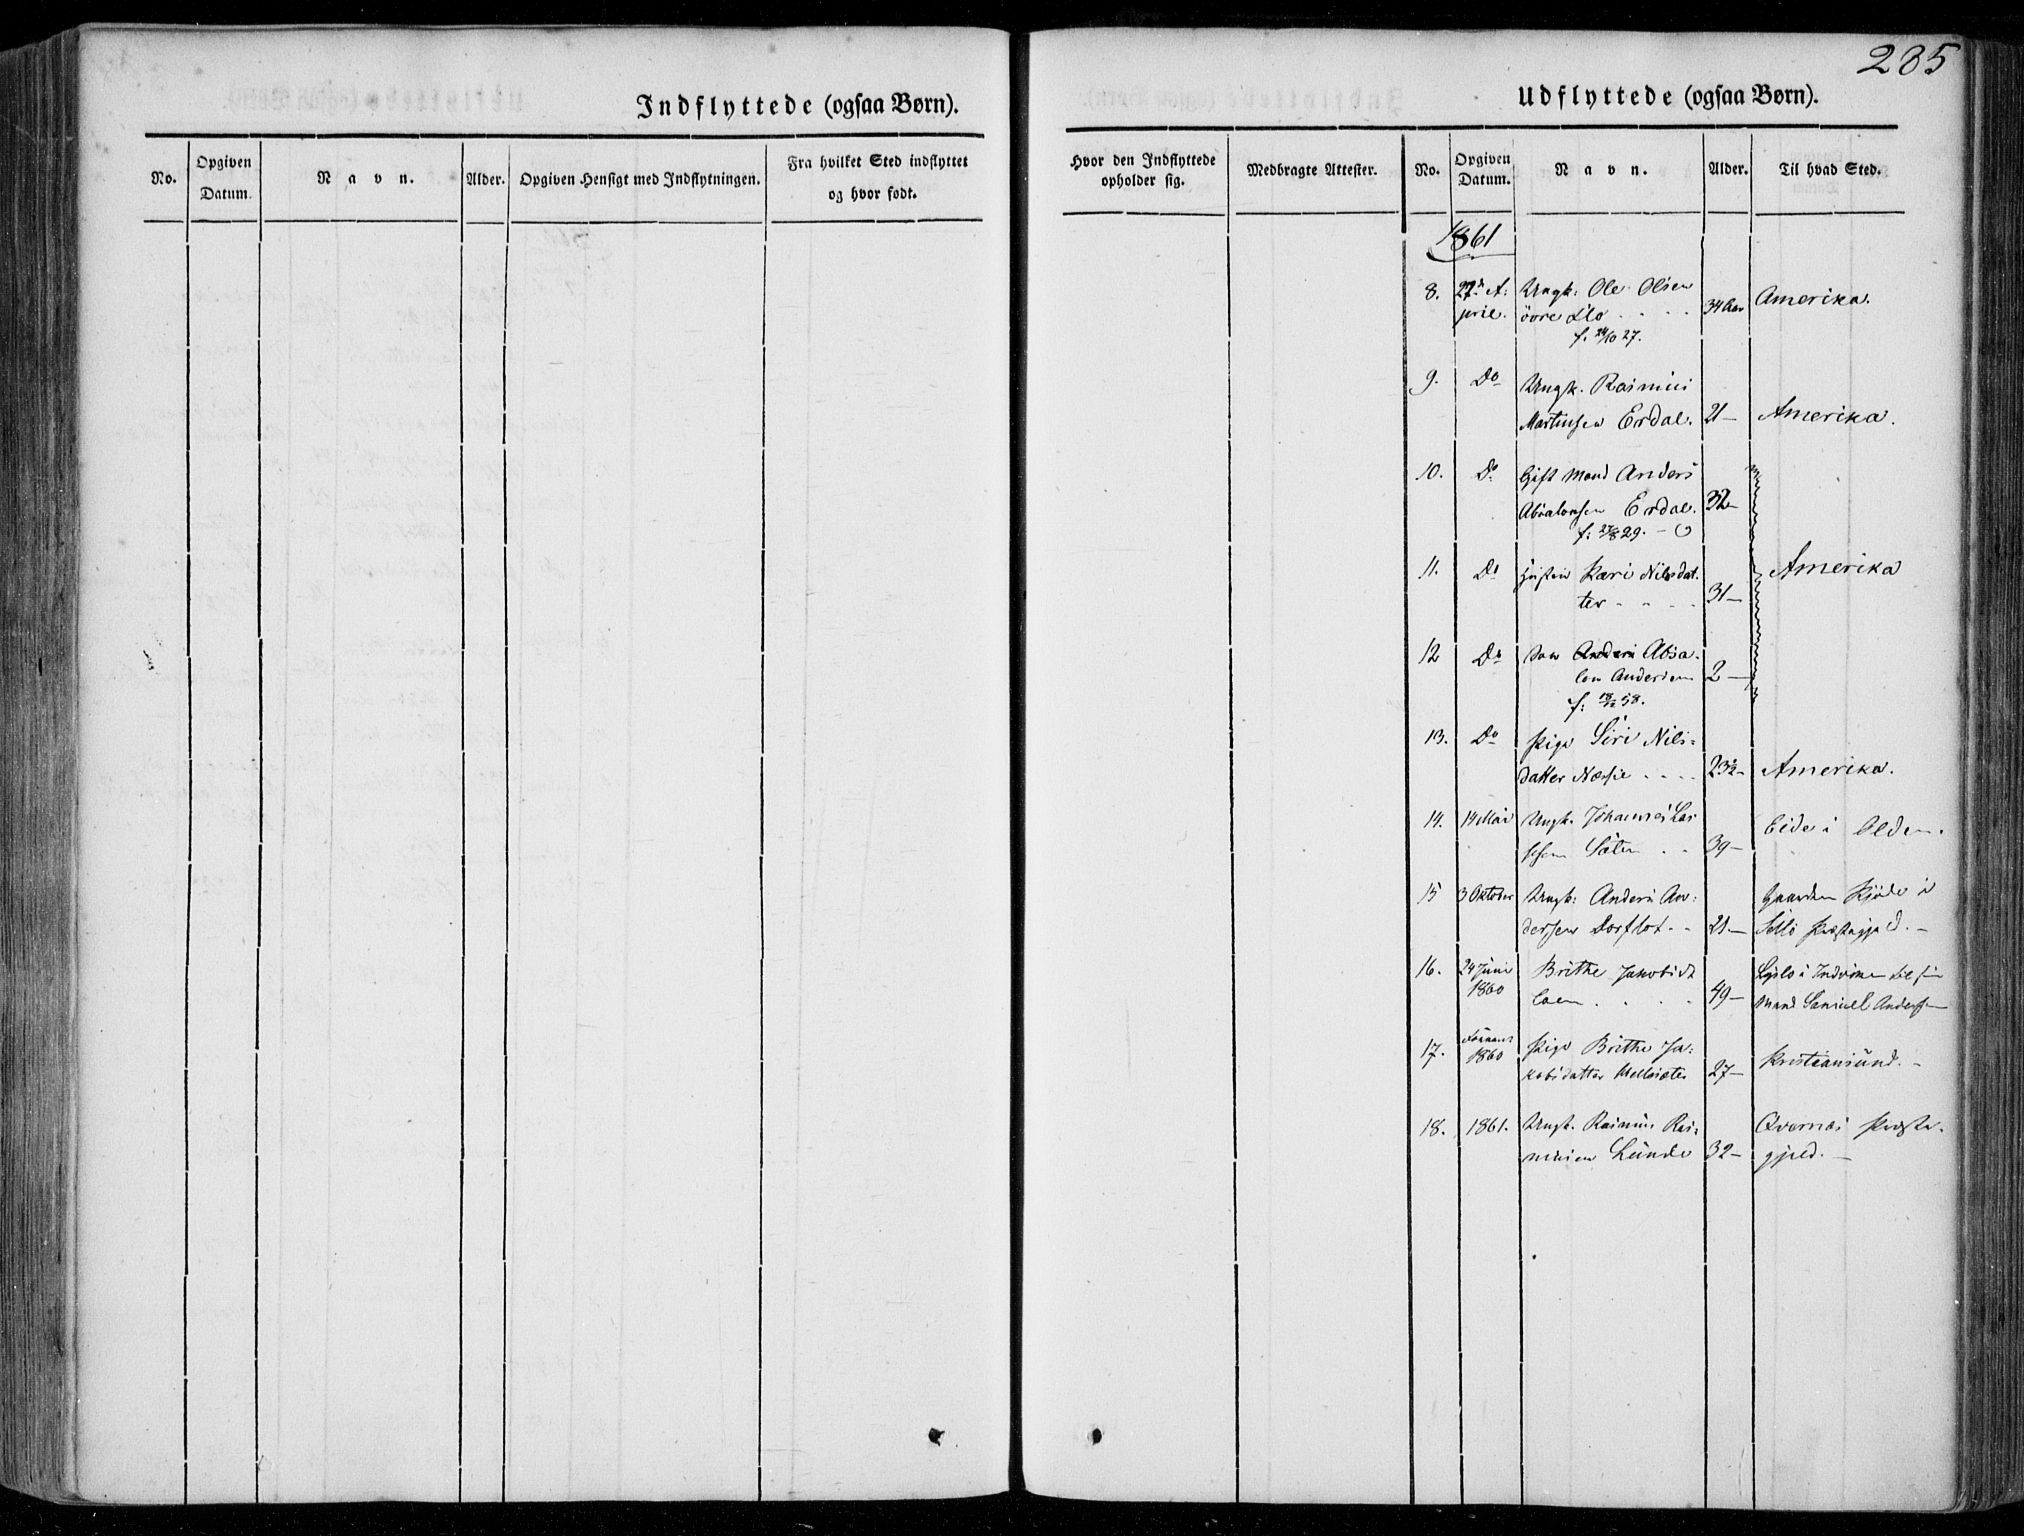 235
Indflyttede (ogsaa Børn).
No.
Opgiven
Datum.
Navn.
Alder.
Opgiven Hensigt med Indflytningen.
Fra hvilket Sted indflyttet
og hvor født.
Udflyttede (ogsaa Børn).
Hvor den Indflyttede
opholder sig.
Medbragte Attester.
No.
Opgiven
Datum.
Navn.
Alder.
Til hvad Sted.
1861
8. 27de A- Ungk: Ole Olsen
pril. övre Flo 34 Aar Amerika.
f. 24/10 27.
9. Do Ungk. Rasmus
Martinsen Erdal. 21- Amerika.
10. Do Gift Mand Anders
Absalonsen Erdal. 32-
f: 27/8 29.
11. Do Kari Nilsdat- Amerika
ter 31-
12 Do Søn Anders Absa-
lon Andersen 2-
f: 18/12 58.
13. Do Pige Siri Nils-
datter Næsje 23½- Amerika.
14. 14 Mai Ungk. Johannes Las- Eide i Olden.
sesen Sæten 39-
15 3 Oktober Ungk: Anders An- Gaarden Kjöde i
dersen Dorflot 21- Sellö Præstegjeld.
16. 24 Juni Brithe Jakobsdt i Indviken til sin
1860 Loen 49- Mand Samuel Andersen
17. 1860 Pige Brithe Ja- Kristiansund.
kobsdatter Mellesæter 27-
18. 1861. Ungk. Rasmus Ras- Qvernæs Præste-
musen Lunde 32- gjeld.